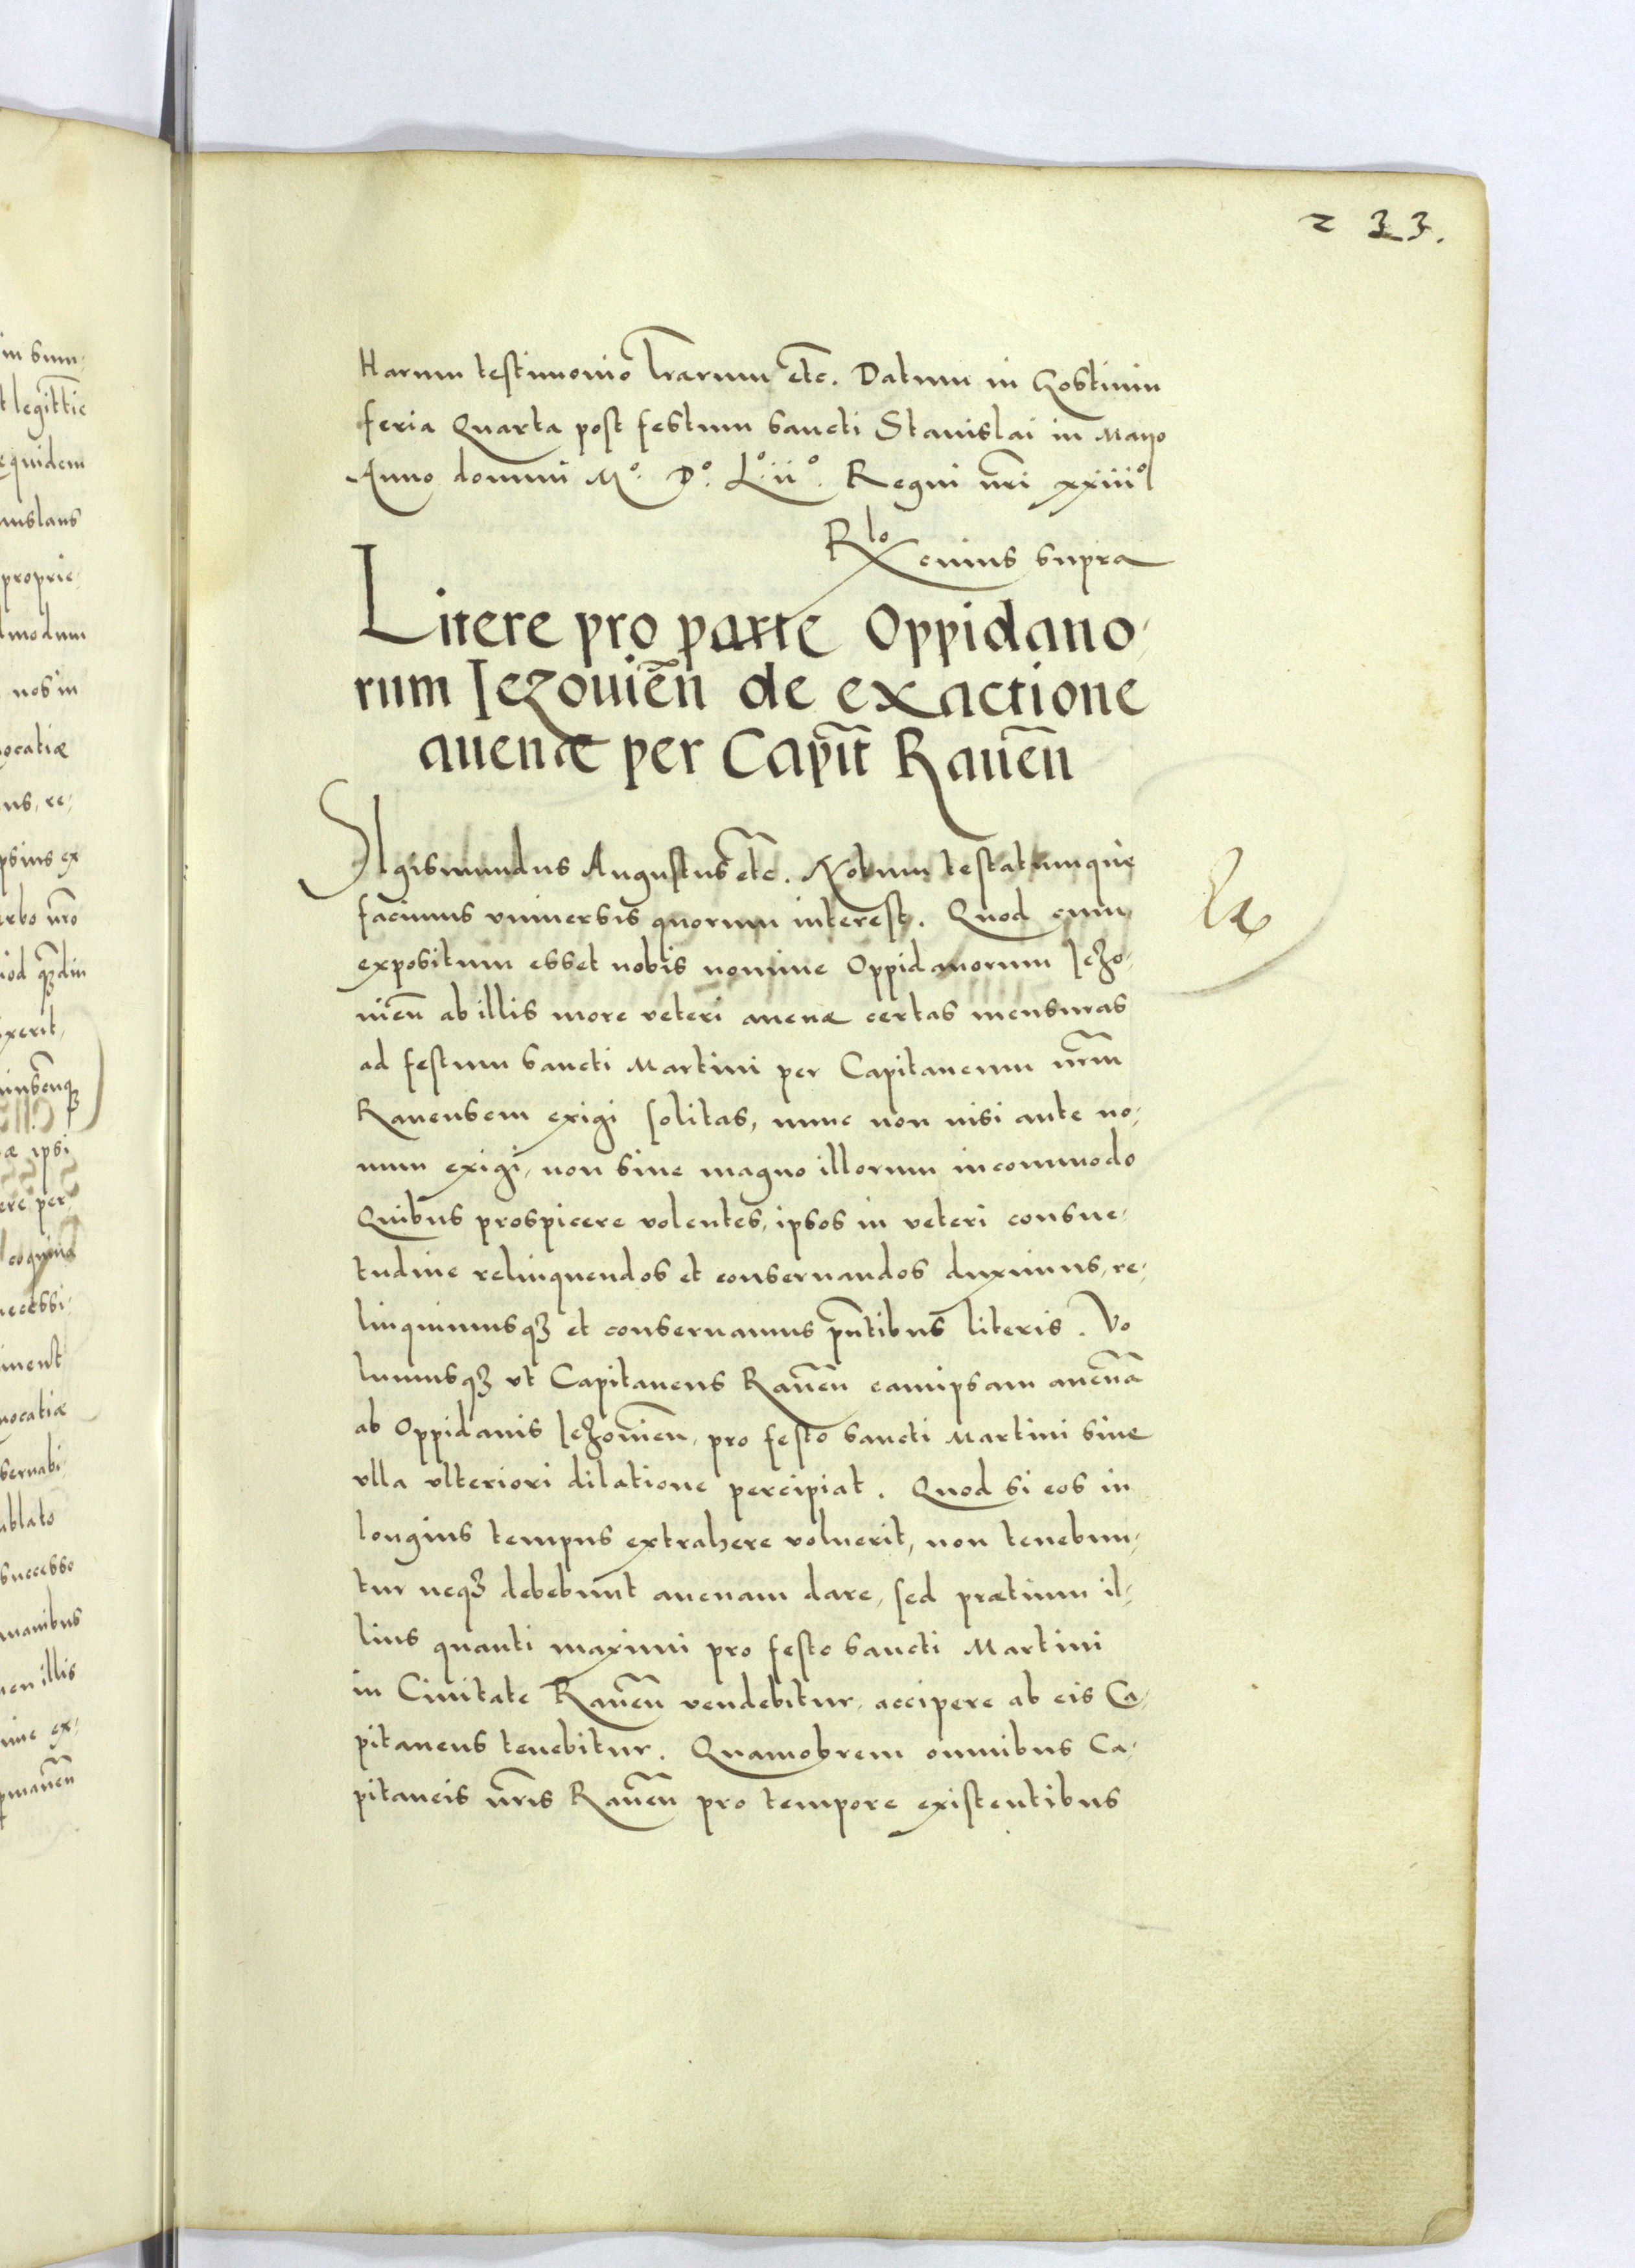 233.
Harum testimonio lrarum etc. Datum in Gostinin
feria Quarta post festum sancti Stanislai in Mayo
Anno domini Mº. Dº. Lº. iiº. Regni nri xxiiiº
Rlo cuius supra
Litere pro parte Oppidano,
rum Iezouien̄ de exactione
auenæ per Capit̄ Rauen̄
SIgismundus Augustus etc. Notum testatumque
facimus vniuersis quorum interest. Quod cum
expositum esset nobis nomine Oppidanorum Iezo,
uien̄ ab illis more veteri auenæ certas mensuras
ad festum sancti Martini per Capitaneum nrm̄
Rauensem exigi solitas, nunc non nisi ante no,
uum exigi, non sine magno illorum incommodo
Quibus prospicere volentes, ipsos in veteri consue,
tudine relinquendos et conseruandos duximus, re,
linquimusqꝫ et conseruamus pn̄tibus literis. Vo
lumusqꝫ vt Capitaneus Rauen̄ eamipsam auenā
ab Oppidanis Iezouien̄, pro festo sancti Martini sine
vlla vlteriori dilatione percipiat. Quod si eos in
longius tempus extrahere voluerit, non tenebun,
tur neqꝫ debebunt auenam dare, sed prætium il,
lius quanti maximi pro festo sancti Martini
in Ciuitate Rauen̄ vendebitur, accipere ab eis Ca,
pitaneus tenebitur. Quamobrem omnibus Ca,
pitaneis nr̄is Rauen̄ pro tempore existentibus